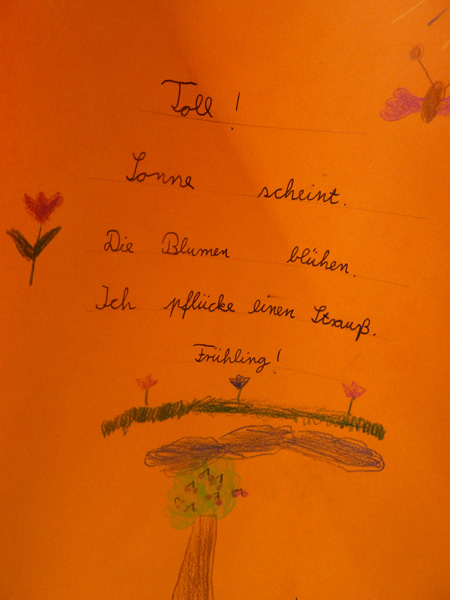 Toll!
Sonne scheint.
Die Blumen blühen.
Ich pflücke einen Strauß.
Frühling!